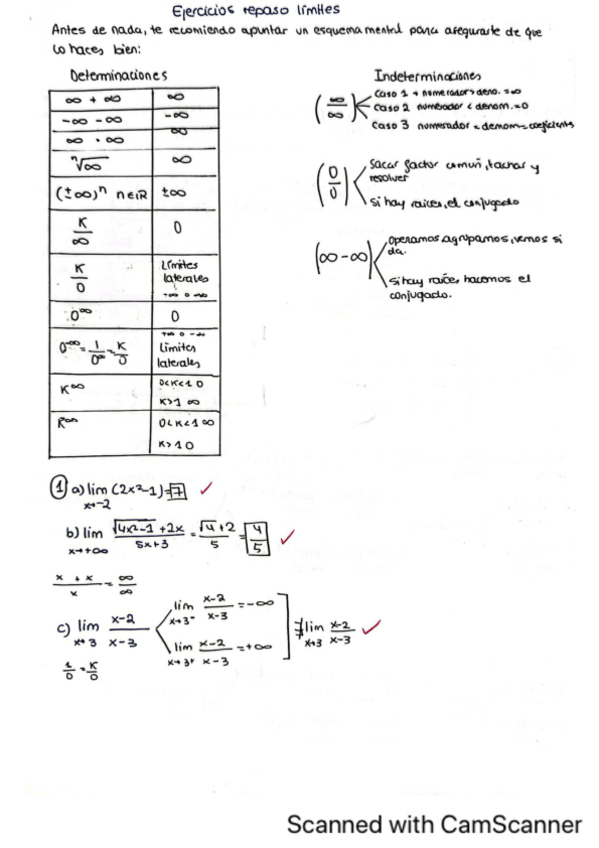 Ejercicios repaso límites
Antes de nada, te recomiendo apuntar un esquema mental para asegurarte de que
lo haces bien:
Determinaciones
∞ + ∞ | ∞
-∞ - ∞ | -∞
∞ · ∞ | ∞
ⁿ√∞ | ∞
(±∞)ⁿ n∈ℝ | ±∞
K/∞ | 0
K/0 | Límites
laterales
+∞ o -∞
0^∞ | 0
= 1/0^∞ = K/0 | +∞ o -∞
Límites
laterales
K^∞ | 0<K<1 0
K>1 ∞
0<K<1 ∞
K>1 0
Indeterminaciones
(∞/∞)
Caso 1 → numerador > deno. = ∞
Caso 2 numerador < denom. = 0
Caso 3 numerador = denom =
(0/0)
Sacar factor común, tachar y
resolver
Si hay raíces, el conjugado
(∞-∞)
Operamos, agrupamos, vemos si
da.
Si hay raíces, hacemos el
conjugado.
① a) lim (2x²-1) = 7 ✓
x→-2
b) lim √4x²-1 + 2x / 5x+3 = √4+2 / 5 = 4/5 ✓
x→+∞
x + x / x = ∞/∞
c) lim x-2 / x-3
x→3
lim x-2 / x-3 = -∞
x→3⁻
lim x-2 / x-3 = +∞
x→3⁺
∄ lim x-2 / x-3 ✓
x→3
1/0 = K/0
Scanned with CamScanner